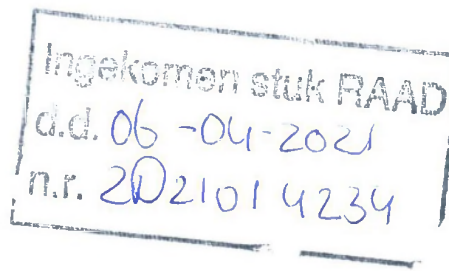 Ingekomen stuk RAAD
d.d. 06-04-2021
n.r. 2D21014234